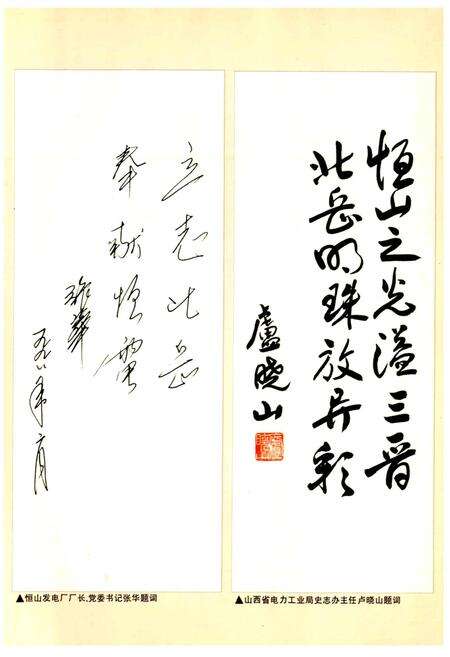 恒山之光溢三晋
北岳明珠放异彩
盧晓山
▲山西省电力工业局史志办主任卢晓山题词
立志北岳
奉献恒電
张華
▲恒山发电厂厂长、党委书记张华题词